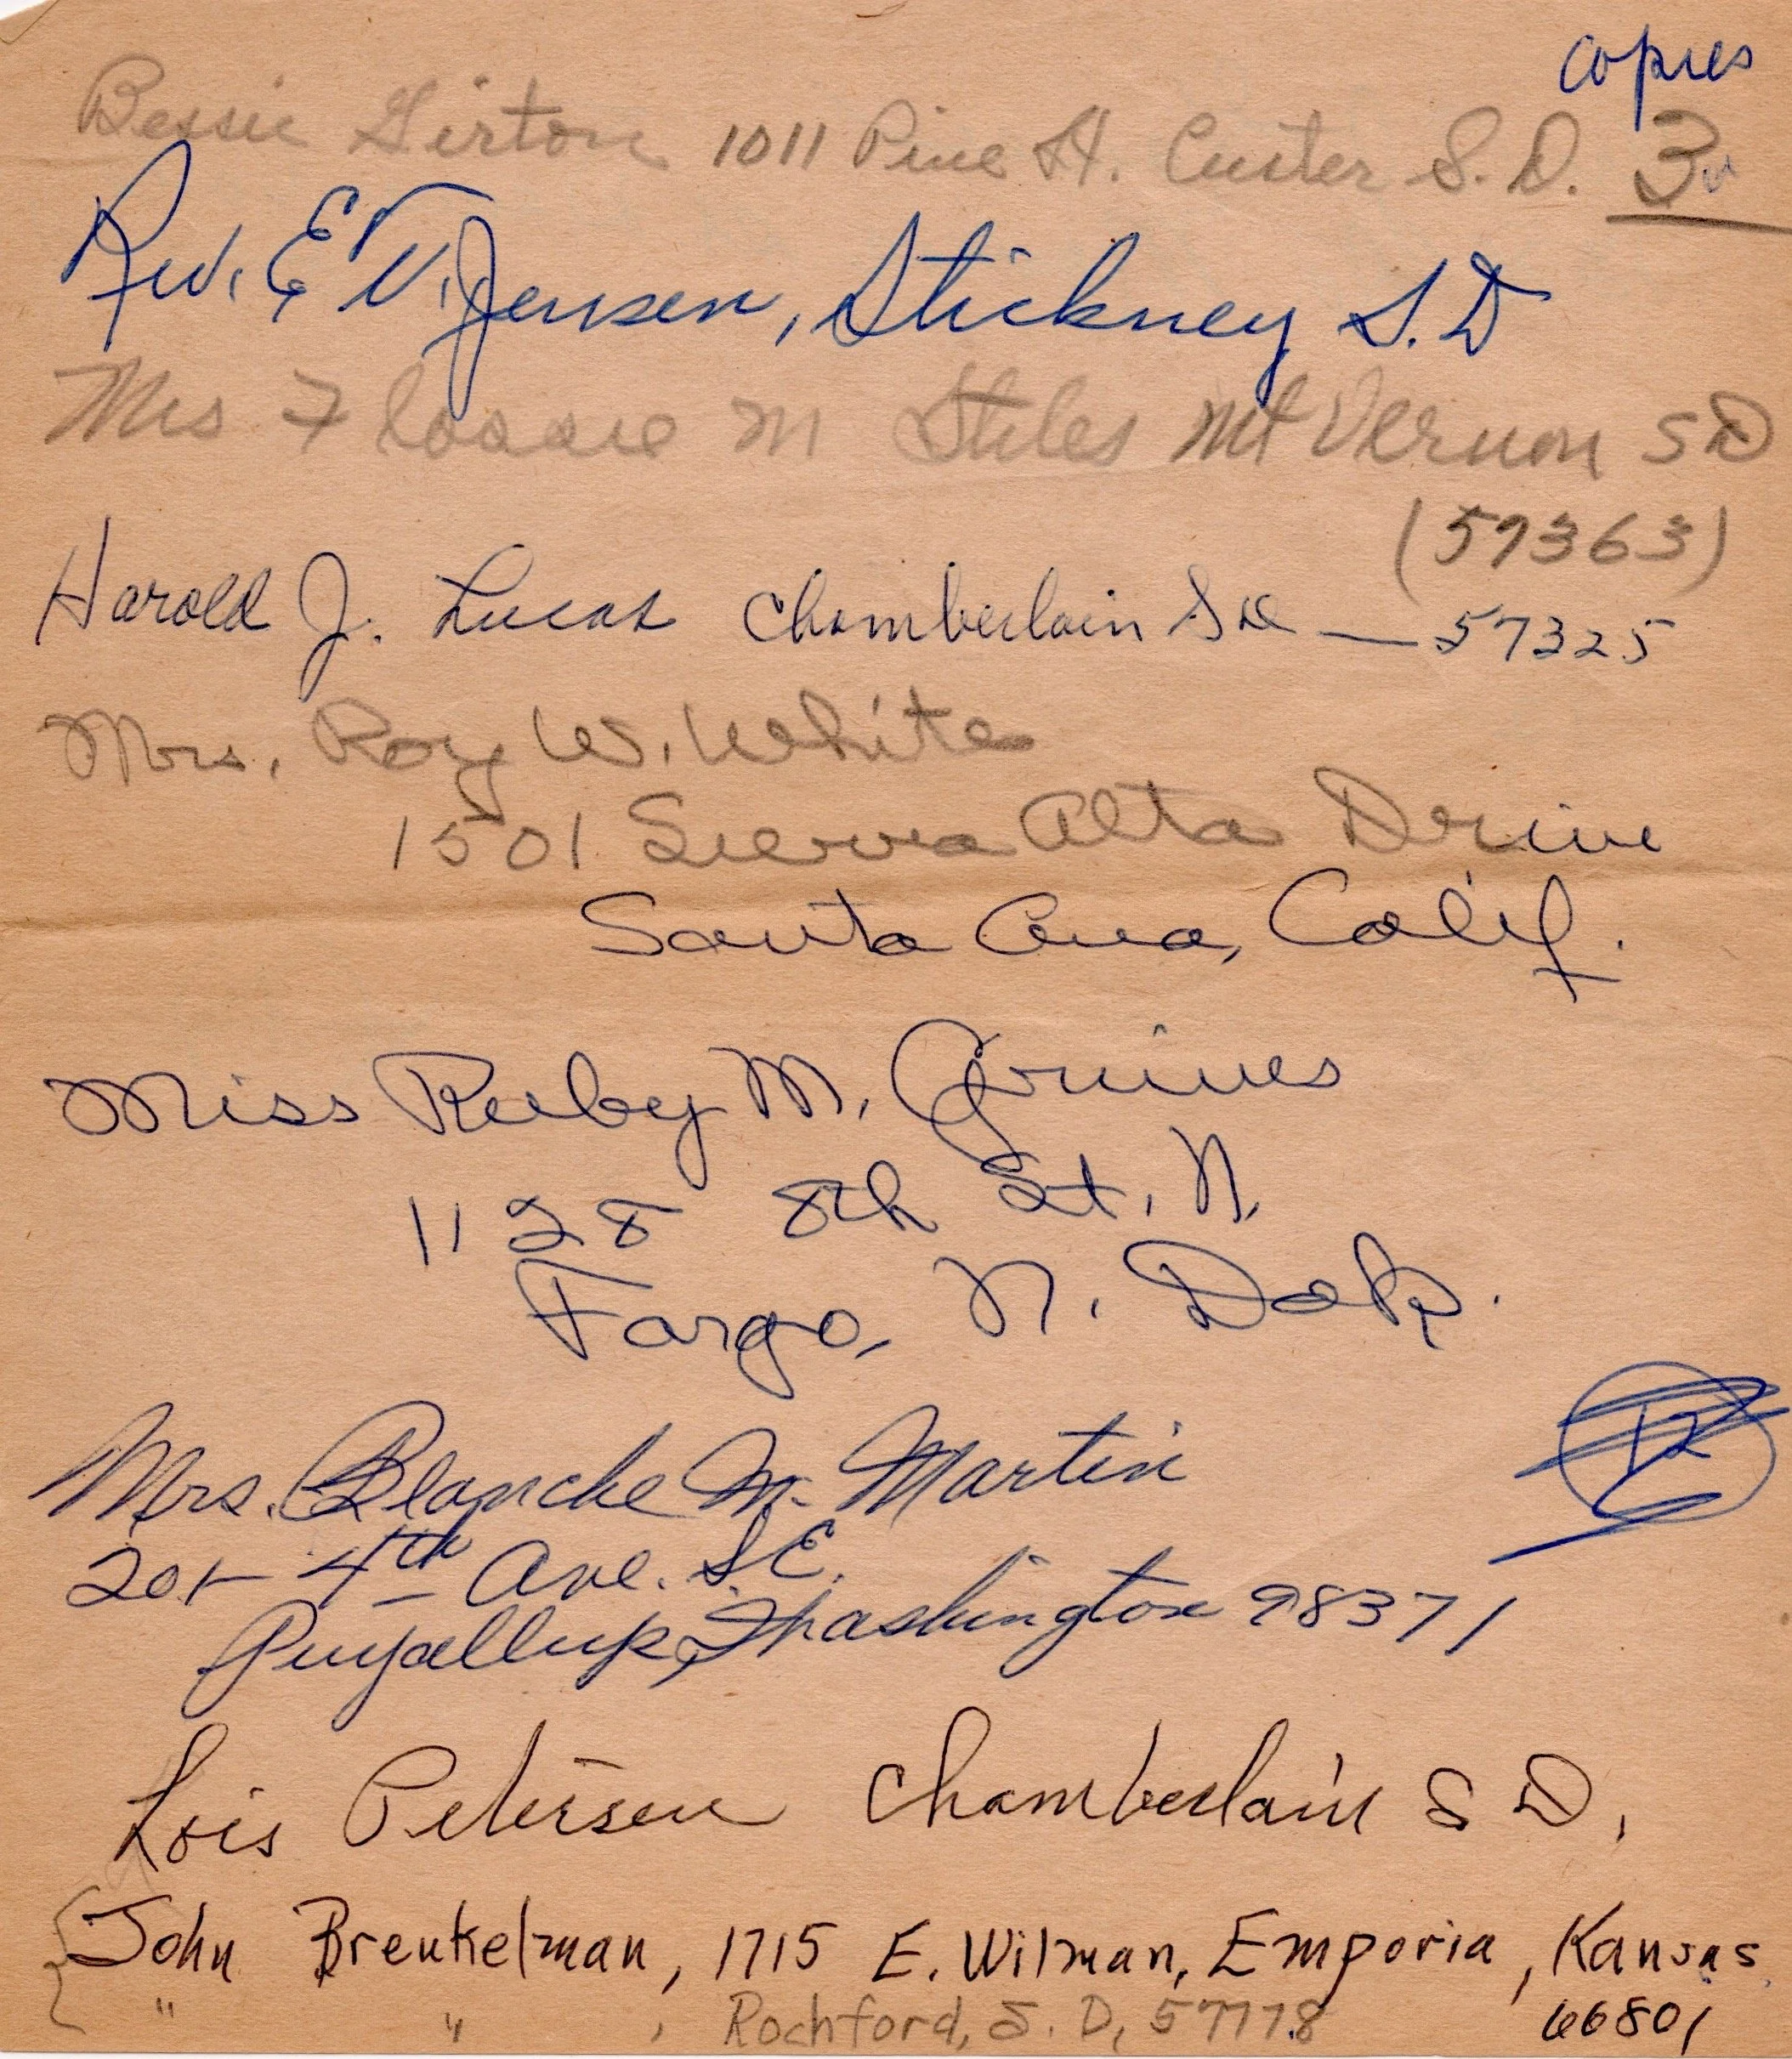 copies
Bessie Girton 1011 Pine St. Custer S.D. 3
Rev. E V. Jensen, Stickney S.D
Mrs Flossie M Stiles Mt Vernon SD
(57363)
Harold J. Lucas Chamberlain SD — 57325
Mrs. Roy W. White
1501 Sierra Alta Drive
Santa Ana, Calif.
Miss Ruby M. Grimes
1128 8th St. N.
Fargo, N. Dak.
12
Mrs. Blanche M. Martin
201- 4th Ave. S.E.
Puyallup, Washington 98371
Lois Petersen Chamberlain S D,
John Breukelman, 1715 E. Wilman, Emporia, Kansas
" " , Rochford, S. D, 57778 66801